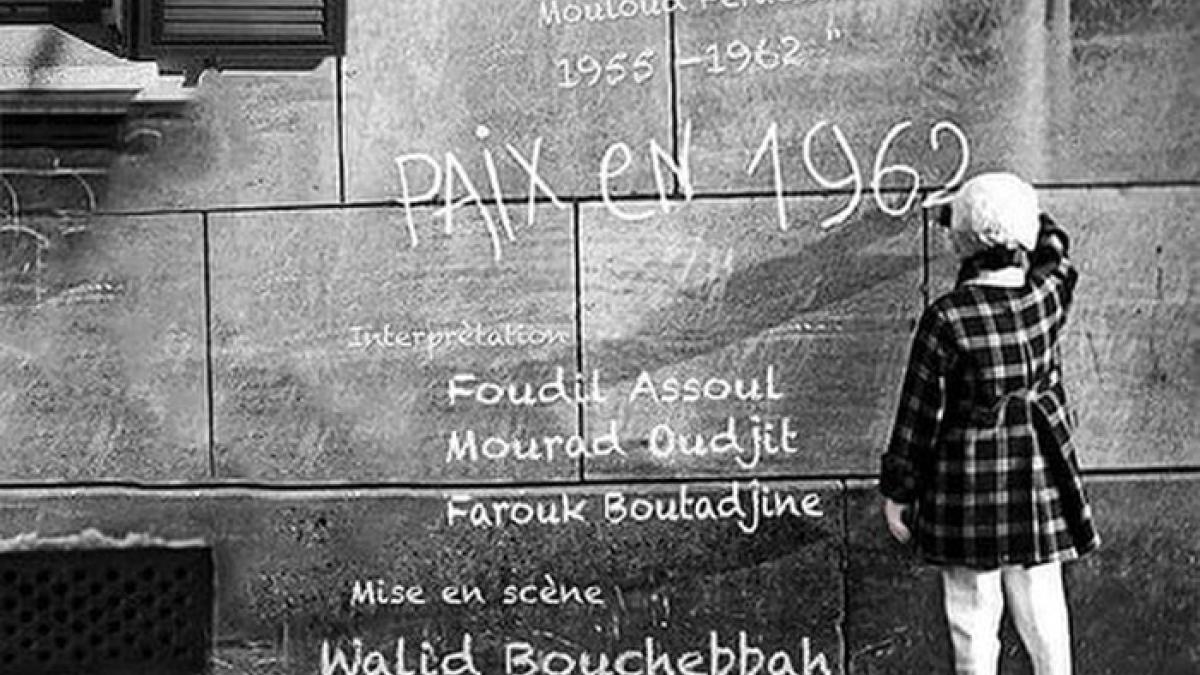 Mouloud
1955 - 1962 "
PAiX eN 1962
Interprètation
Foudil Assoul
Mourad Oudjit
Farouk Boutadjine
Mise en scène
Walid Bouchebbah